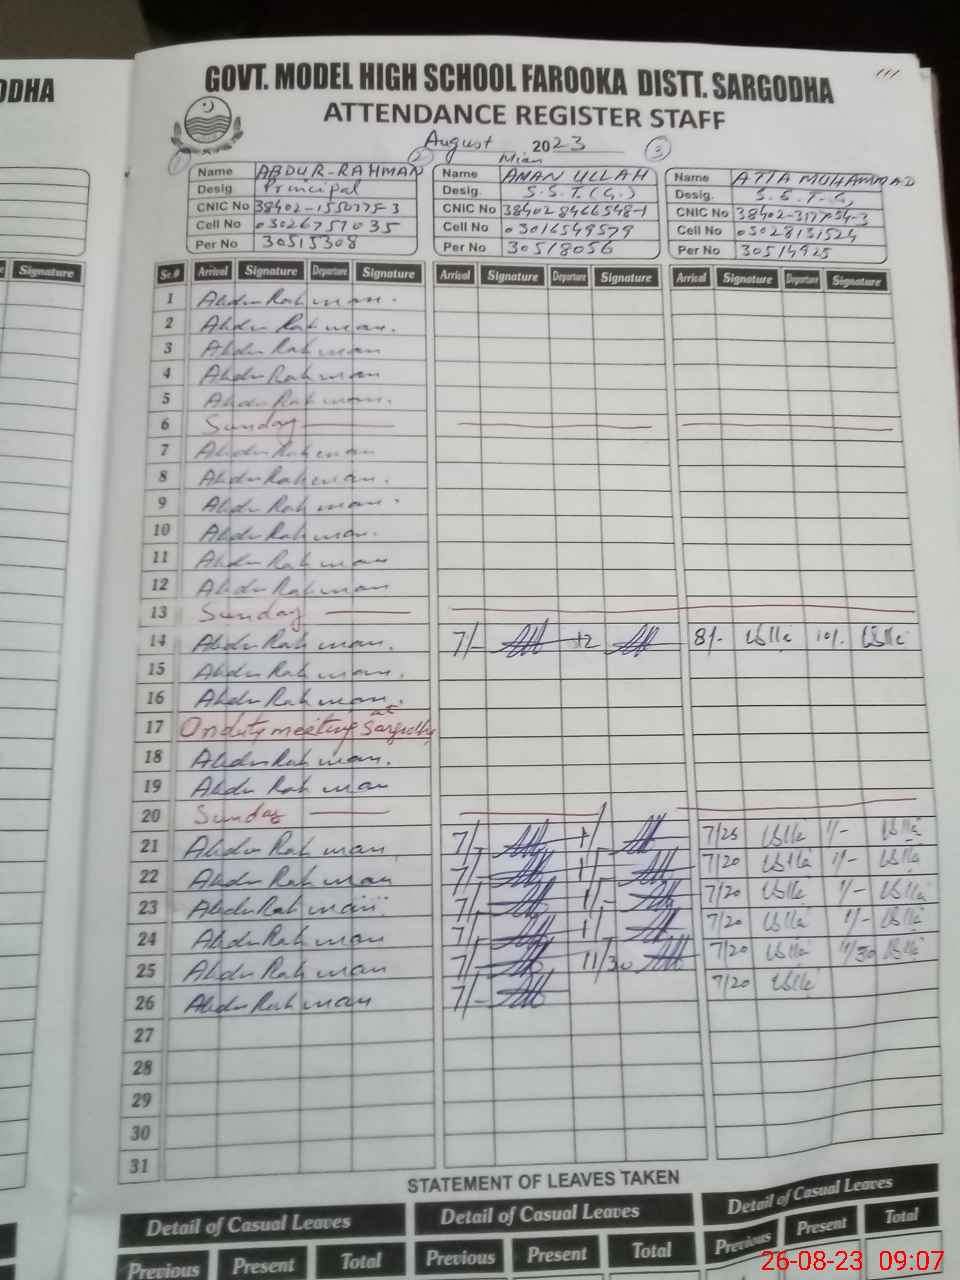 ODHA
GOVT. MODEL HIGH SCHOOL FAROOKA DISTT. SARGODHA
ATTENDANCE REGISTER STAFF
August 2023
1 2 3
Name ABDUR-RAHMAN
Desig. Principal
CNIC No 38402-1550175-3
Cell No 03026757035
Per No 30515308
Name Mian AMAN ULLAH
Desig. S.S.T.(G.)
CNIC No 384028466548-1
Cell No 03016549579
Per No 30518056
Name ATTA MUHAMMAD
Desig. S.S.T.G.
CNIC No
Cell No 03028131524
Per No 30514925
Signature
Sr.# Arrival Signature Departure Signature Arrival Signature Departure Signature Arrival Signature Departure Signature
1 Abdur Rahman.
2 Abdur Rahman.
3 Abdur Rahman
4 Abdur Rahman
5 Abdur Rahman.
6 Sunday
7 Abdur Rahman
8 Abdur Rahman.
9 Abdur Rahman.
10 Abdur Rahman.
11 Abdur Rahman
12 Abdur Rahman
13 Sunday
14 Abdur Rahman. 7/- 12 8/- 10/-
15 Abdur Rahman.
16 Abdur Rahman.
17 On duty meeting at Sargodha
18 Abdur Rahman.
19 Abdur Rahman
20 Sunday
21 Abdur Rahman 7/- 1/- 7/25 1/-
22 Abdur Rahman 7/- 1/- 7/20 1/-
23 Abdur Rahman 7/- 1/- 7/20 1/-
24 Abdur Rahman 7/- 1/- 7/20 1/-
25 Abdur Rahman 7/- 11/30 7/20 11/30
26 Abdur Rahman 7/- 7/20
27
28
29
30
31
STATEMENT OF LEAVES TAKEN
Detail of Casual Leaves Detail of Casual Leaves Detail of Casual Leaves
Previous Present Total Previous Present Total Previous Present Total
26-08-23 09:07